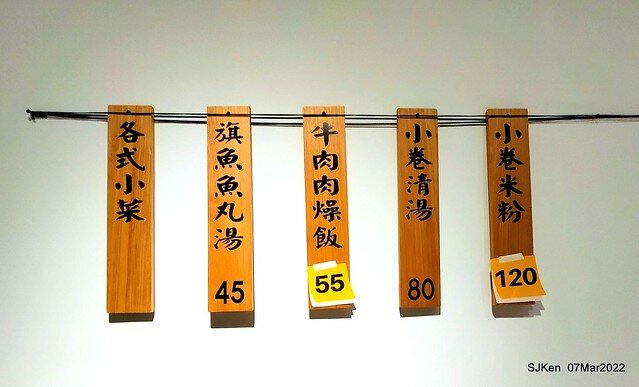 各式小菜
旗魚魚丸湯
45
牛肉肉燥飯
55
小卷清湯
80
小卷米粉
120
SJKen 07Mar2022